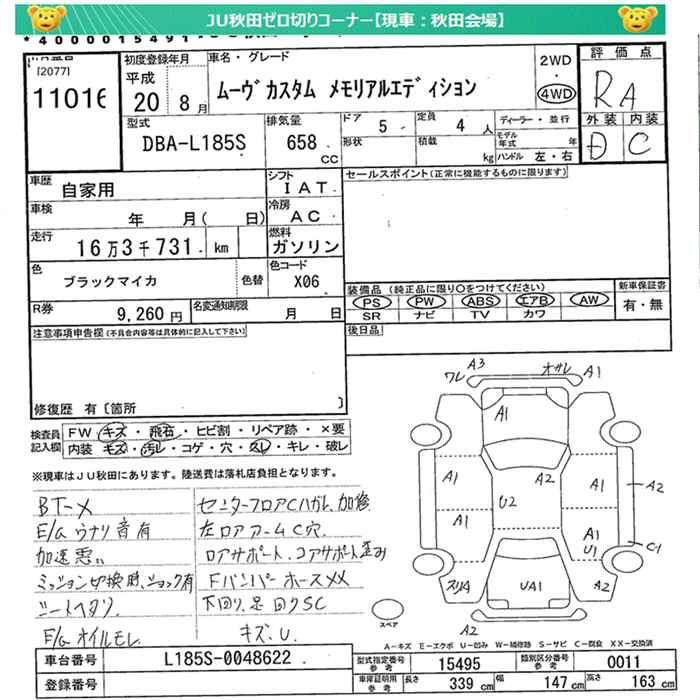 JU秋田ゼロ切りコーナー【現車：秋田会場】
[2077]
11016
初度登録年月
平成
20 8月
車名・グレード
ムーヴ カスタム メモリアルエディション
2WD
・
4WD
評価点
RA
外装 内装
D C
型式
DBA-L185S
排気量
658
cc
ドア 5
定員 4 人
形状
積載 kg
ディーラー・並行
モデル年式 年
ハンドル 左・右
車歴
自家用
シフト
IAT
セールスポイント(正常に機能するものに限ります)
車検
年 月( 日)
冷房
AC
走行
16万3千731 km
燃料
ガソリン
色
ブラックマイカ
色替
色コード
X06
装備品 (純正品に限り○をつけてください)
新車保証書
PS PW ABS エアB AW
有・無
SR ナビ TV カワ
R券
9,260 円
名変通知期限
月 日
後日品
注意事項申告欄(不具合内容等は具体的に記入して下さい)
修復歴 有〔箇所 〕
検査員記入欄
FW キズ・飛石・ヒビ割・リペア跡・×要
内装 キズ・汚レ・コゲ・穴・スレ・キレ・破レ
※現車はJU秋田にあります。陸送費は落札店負担となります。
BT-×
E/G ウナリ音有
加速悪い
ミッション切換時、ショック有
シートヘタリ、
E/G オイルモレ、
センターフロアCハガレ、加修
左ロアアームC穴、
ロアサポート、コアサポート歪み
Fバンパーホース××
下回り、足回りSC
キズ、U.
ワレ A3 オサレ A1
A1
A1 A2 A1 A2
U2
A1 A1 U1 C1
スリA UA1 A2
A2
スペア
A-キズ E-エクボ U-凹み W-補修跡 S-サビ C-腐食 XX-交換済
車台番号
L185S-0048622
登録番号
型式指定番号 参考
15495
類別区分番号 参考
0011
車庫証明用 参考
長さ 339 cm 幅 147 cm 高さ 163 cm